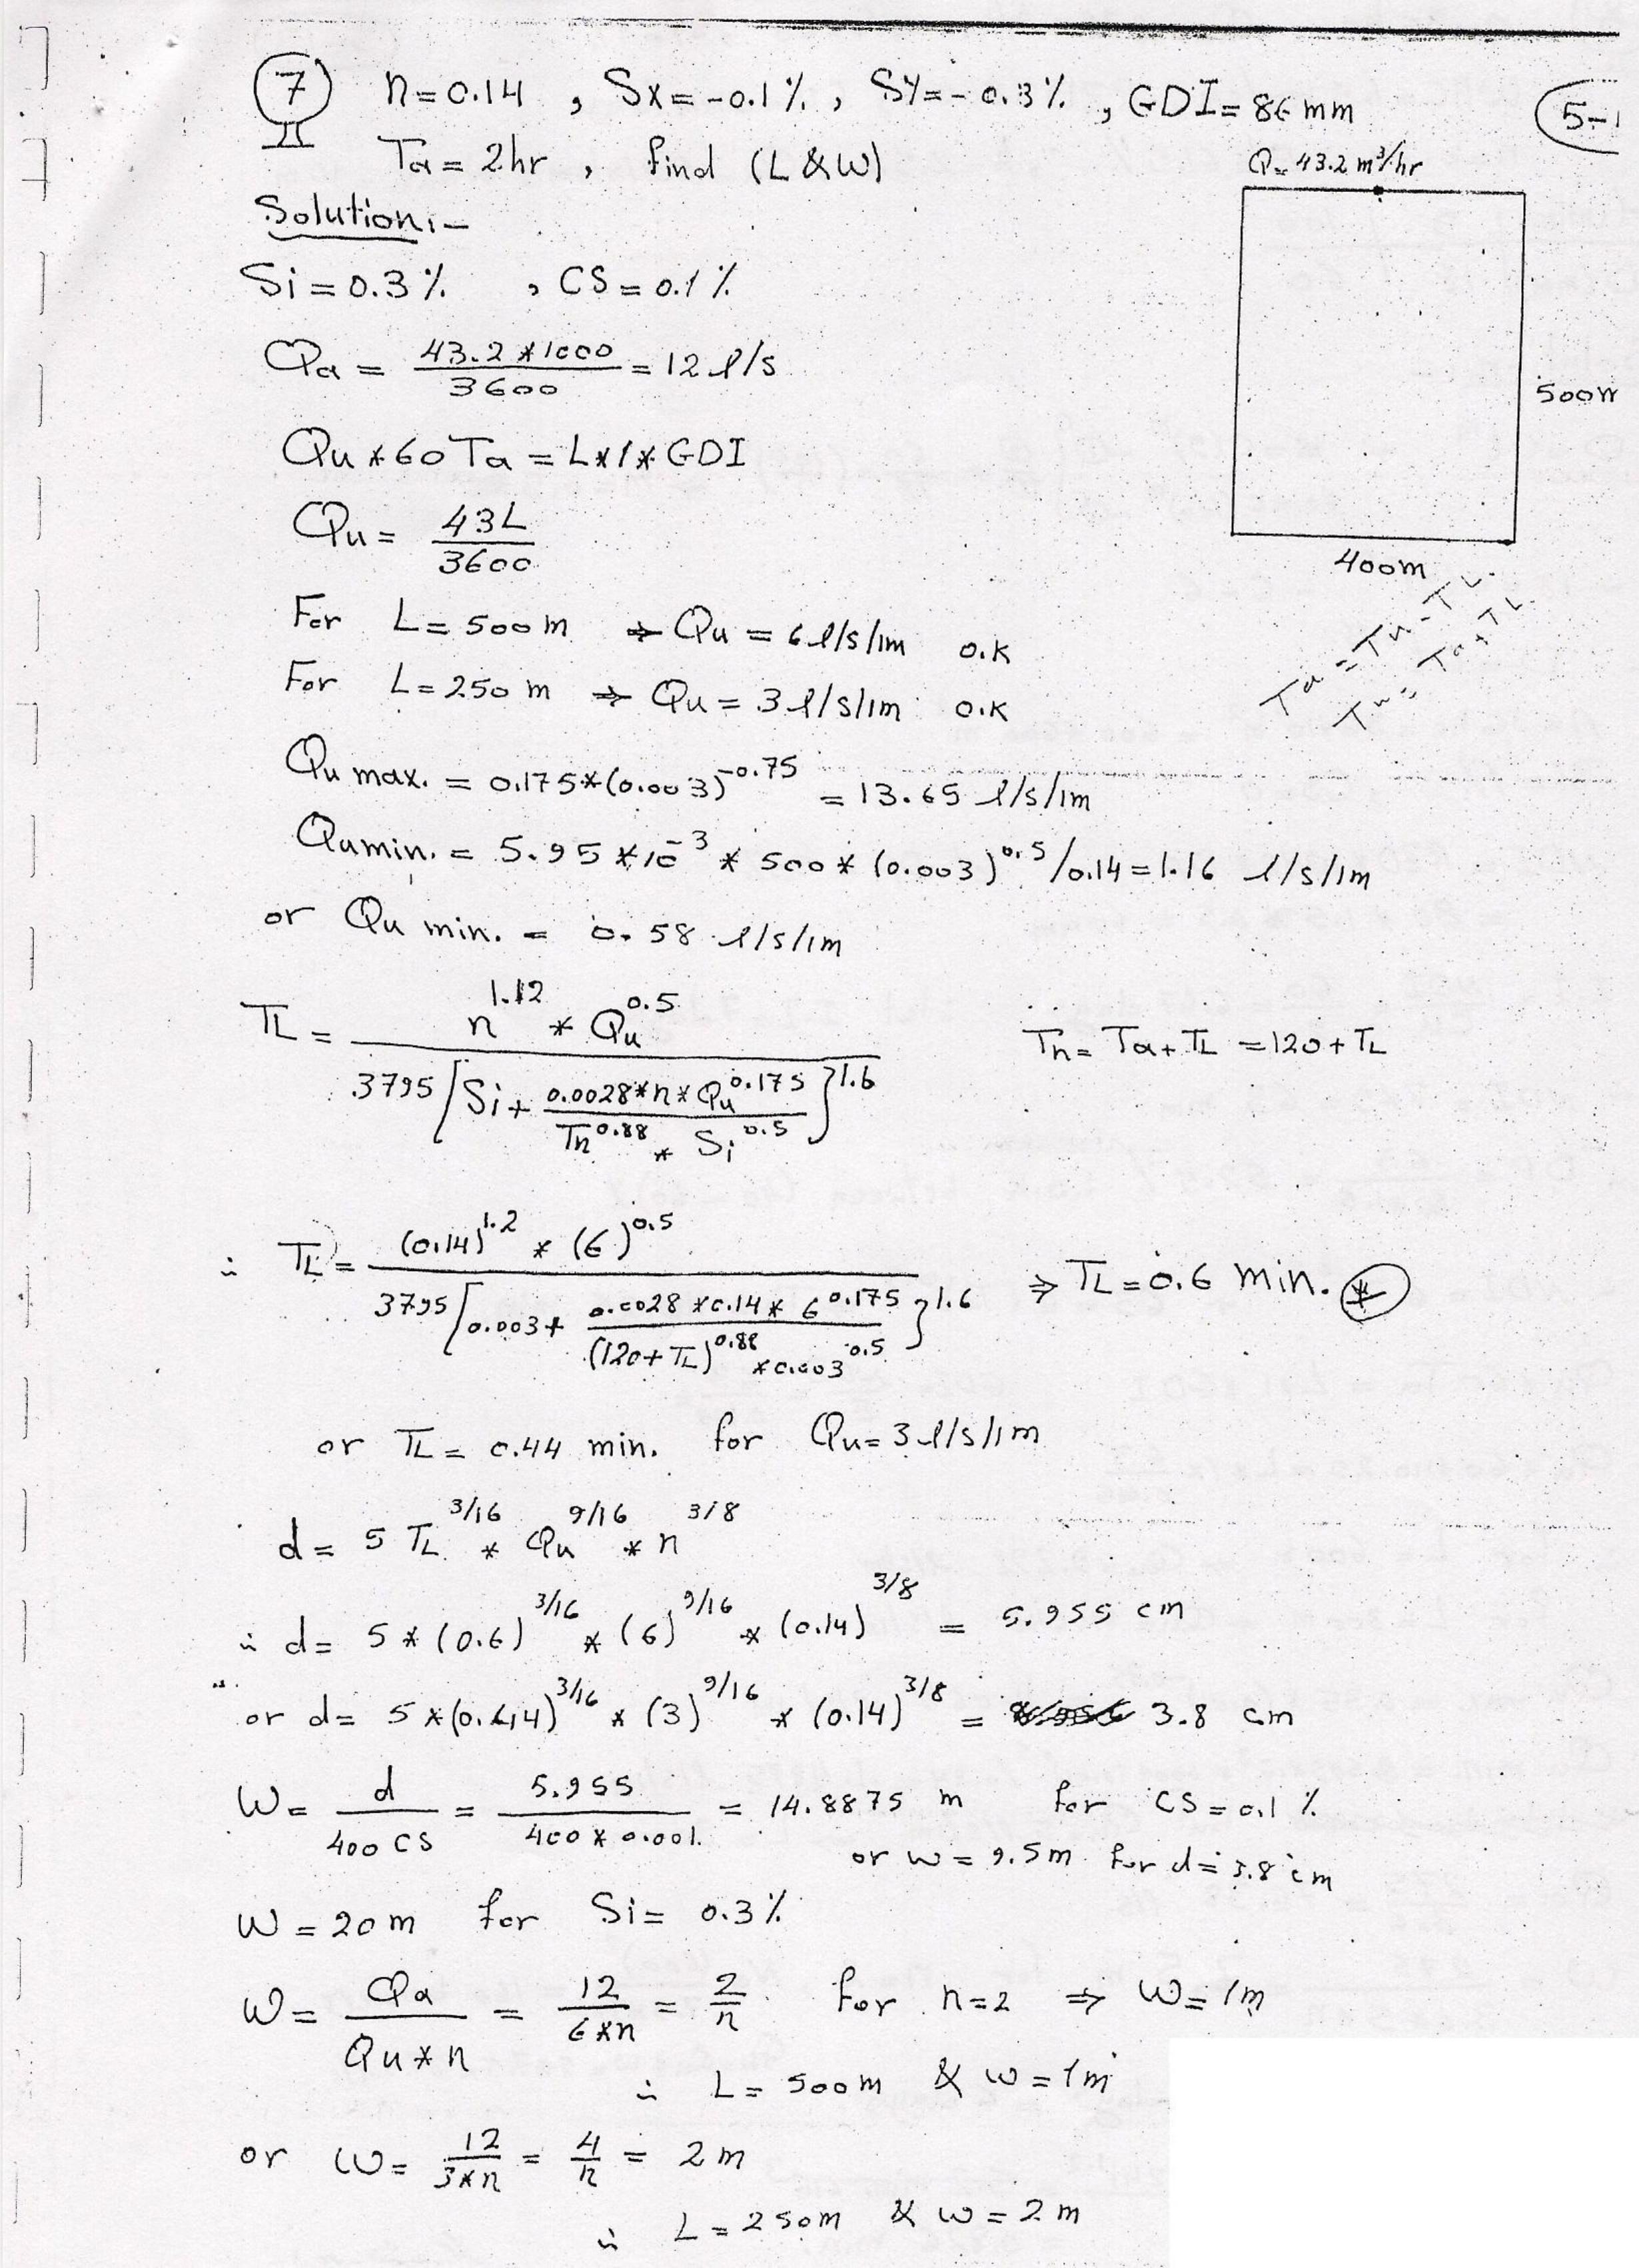 7 n=0.14 , Sx=-0.1% , Sy=-0.3% , GDI=86mm
5-
Ta=2hr , find (L&W)
Q=43.2 m³/hr
Solution:-
Si=0.3% , CS=0.1%
Qa = 43.2*1000/3600 = 12 l/s
500m
Qu*60Ta=L*1*GDI
Qu= 43L/3600
400m
For L=500m ⇒ Qu=6 l/s/1m o.k
For L=250m ⇒ Qu=3 l/s/1m o.k
Ta=Tn-TL
Tn=Ta+TL
Qu max. = 0.175*(0.003)^-0.75 = 13.65 l/s/1m
Qumin. = 5.95*10^-3 * 500*(0.003)^0.5/0.14=1.16 l/s/1m
or Qu min. = 0.58 l/s/1m
TL = n^1.12 * Qu^0.5 / 3795[Si+ 0.0028*n*Qu^0.175 / Tn^0.88 * Si^0.5]^1.6
Tn= Ta+TL =120+TL
∴ TL = (0.14)^1.2 * (6)^0.5 / 3795[0.003+ 0.0028*0.14*6^0.175 / (120+TL)^0.88 *0.003^0.5]^1.6 ⇒ TL=0.6 min. *
or TL= 0.44 min. for Qu=3 l/s/1m
d= 5 TL^3/16 * Qu^9/16 * n^3/8
∴ d= 5*(0.6)^3/16 * (6)^9/16 * (0.14)^3/8 = 5.955 cm
or d= 5*(0.44)^3/16 * (3)^9/16 * (0.14)^3/8 = 3.8 cm
W= d/400 CS = 5.955/400*0.001 = 14.8875 m for CS=0.1%
or w=9.5m for d=3.8cm
W=20m for Si= 0.3%
W= Qa/Qu*n = 12/6*n = 2/n for n=2 ⇒ W=1m
∴ L=500m & w=1m
or W= 12/3*n = 4/n = 2m
∴ L=250m & w=2m